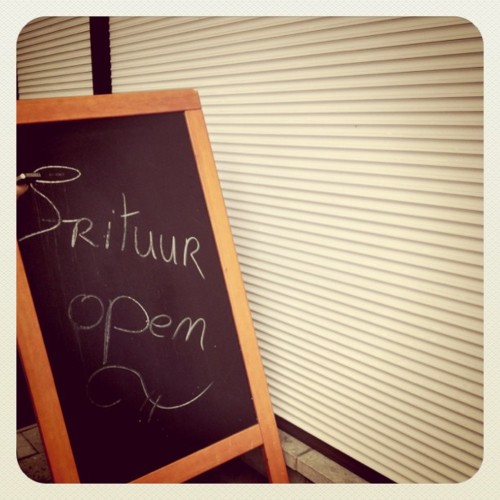 Frituur
open